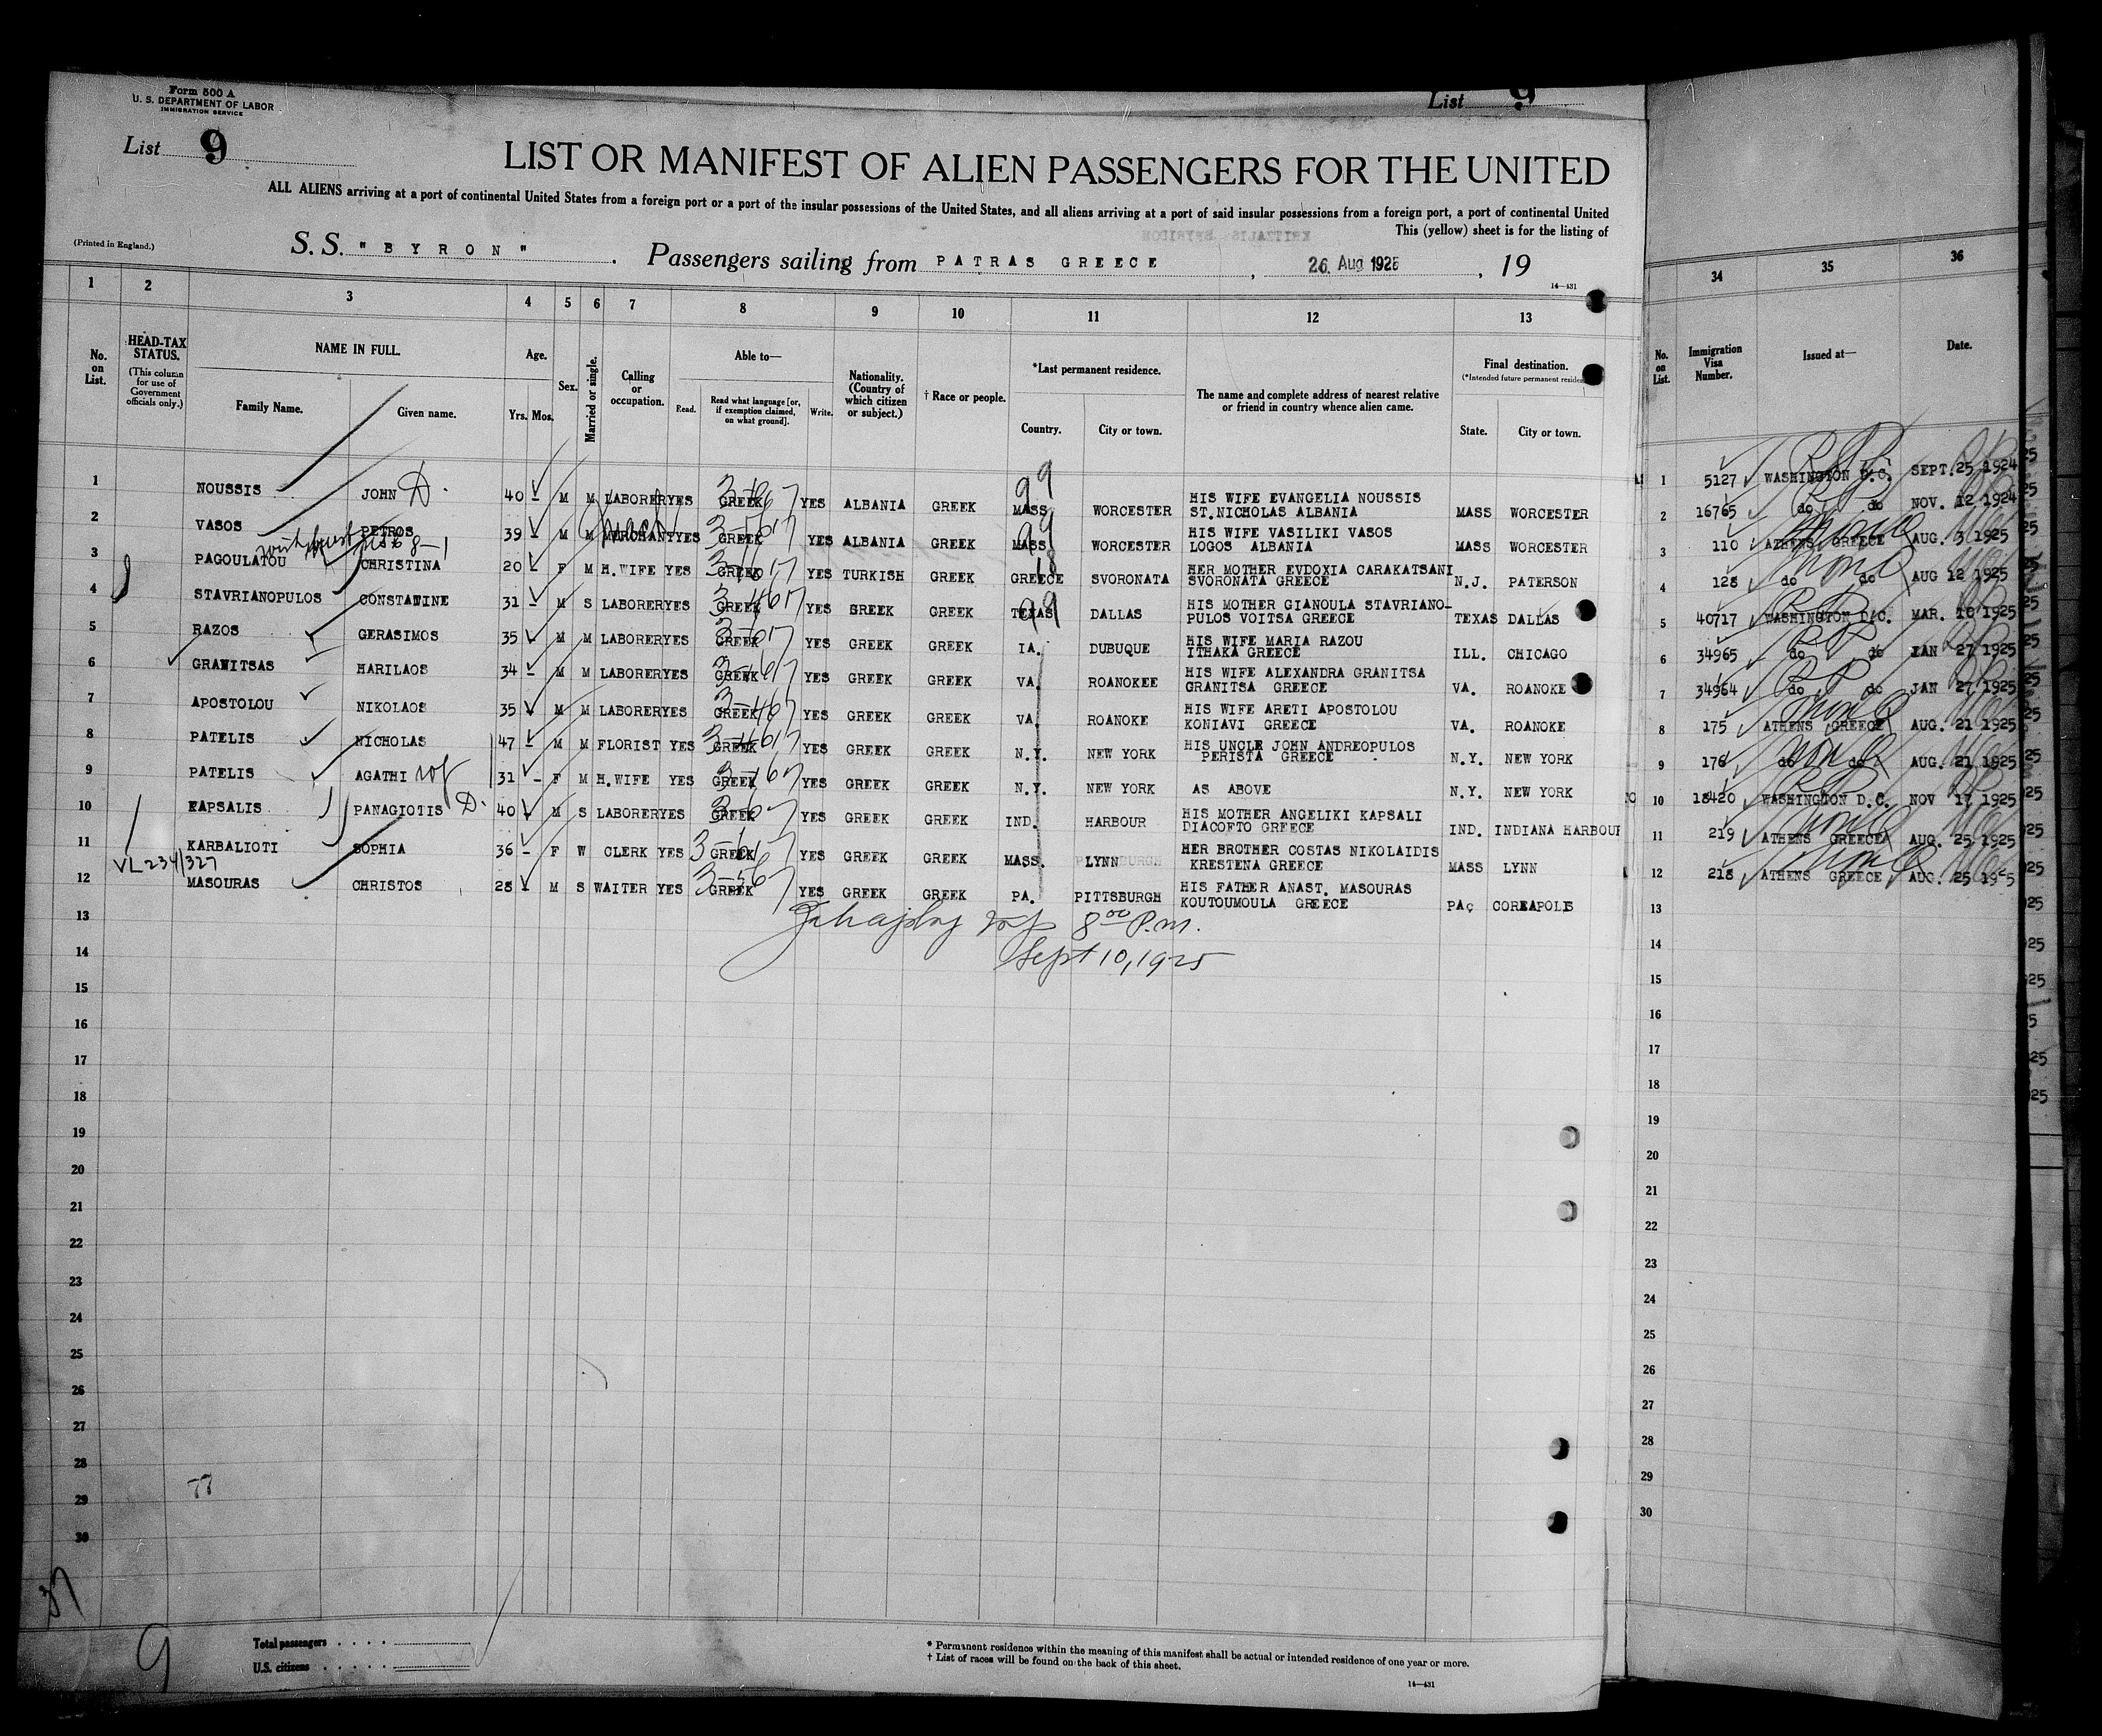 Form 500 A
U. S. DEPARTMENT OF LABOR
IMMIGRATION SERVICE
List 9
List 9
LIST OR MANIFEST OF ALIEN PASSENGERS FOR THE UNITED
ALL ALIENS arriving at a port of continental United States from a foreign port or a port of the insular possessions of the United States, and all aliens arriving at a port of said insular possessions from a foreign port, a port of continental United
This (yellow) sheet is for the listing of
(Printed in England.)
S. S. "BYRON". Passengers sailing from PATRAS GREECE, 26 Aug 1925, 19
14—431
1 2 3 4 5 6 7 8 9 10 11 12 13 34 35 36
No. on List.
HEAD-TAX STATUS.
(This column for use of Government officials only.)
NAME IN FULL.
Family Name. Given name.
Age.
Yrs. Mos.
Sex.
Married or single.
Calling or occupation.
Able to—
Read. Read what language [or, if exemption claimed, on what ground]. Write.
Nationality. (Country of which citizen or subject.)
† Race or people.
*Last permanent residence.
Country. City or town.
The name and complete address of nearest relative or friend in country whence alien came.
Final destination.
(*Intended future permanent
State. City or town.
No. on List.
Immigration Visa Number.
Issued at—
Date.
1 NOUSSIS JOHN D. 40 – M M LABORER YES GREEK YES ALBANIA GREEK MASS WORCESTER HIS WIFE EVANGELIA NOUSSIS ST.NICHOLAS ALBANIA MASS WORCESTER 1 5127 WASHINGTON D.C. SEPT.25 1924
2 VASOS PETROS 39 – M M MERCHANT YES GREEK YES ALBANIA GREEK MASS WORCESTER HIS WIFE VASILIKI VASOS LOGOS ALBANIA MASS WORCESTER 2 16765 do do NOV. 12 1924
3 PAGOULATOU CHRISTINA 20 F M H.WIFE YES GREEK YES TURKISH GREEK GREECE SVORONATA HER MOTHER EVDOXIA CARAKATSANI SVORONATA GREECE N.J. PATERSON 3 110 ATHENS GREECE AUG. 3 1925
4 STAVRIANOPULOS CONSTANINE 31 – M S LABORER YES GREEK YES GREEK GREEK TEXAS DALLAS HIS MOTHER GIANOULA STAVRIANO- PULOS VOITSA GREECE TEXAS DALLAS 4 128 do do AUG 12 1925
5 RAZOS GERASIMOS 35 – M M LABORER YES GREEK YES GREEK GREEK IA. DUBUQUE HIS WIFE MARIA RAZOU ITHAKA GREECE ILL. CHICAGO 5 40717 WASHINGTON D.C. MAR. 10 1925
6 GRANITSAS HARILAOS 34 – M M LABORER YES GREEK YES GREEK GREEK VA. ROANOKEE HIS WIFE ALEXANDRA GRANITSA GRANITSA GREECE VA. ROANOKE 6 34965 do do JAN 27 1925
7 APOSTOLOU NIKOLAOS 35 M M LABORER YES GREEK YES GREEK GREEK VA. ROANOKE HIS WIFE ARETI APOSTOLOU KONIAVI GREECE VA. ROANOKE 7 34964 do do JAN 27 1925
8 PATELIS NICHOLAS 47 – M M FLORIST YES GREEK YES GREEK GREEK N.Y. NEW YORK HIS UNCLE JOHN ANDREOPULOS PERISTA GREECE N.Y. NEW YORK 8 175 ATHENS GREECE AUG. 21 1925
9 PATELIS AGATHI 31 – F M H.WIFE YES GREEK YES GREEK GREEK N.Y. NEW YORK AS ABOVE N.Y. NEW YORK 9 176 do do AUG. 21 1925
10 KAPSALIS PANAGIOTIS D. 40 M S LABORER YES GREEK YES GREEK GREEK IND. HARBOUR HIS MOTHER ANGELIKI KAPSALI DIACOFTO GREECE IND. INDIANA HARBOUR 10 18420 WASHINGTON D.C. NOV 17 1925
11 KARBALIOTI SOPHIA 36 – F W CLERK YES GREEK YES GREEK GREEK MASS. LYNN HER BROTHER COSTAS NIKOLAIDIS KRESTENA GREECE MASS LYNN 11 219 ATHENS GREECE AUG. 25 1925
VL 234/327
12 MASOURAS CHRISTOS 28 M S WAITER YES GREEK YES GREEK GREEK PA. PITTSBURGH HIS FATHER ANAST. MASOURAS KOUTOUMOULA GREECE PA COREAPOLIS 12 218 ATHENS GREECE AUG. 25
13 8 00 P.m. 13
14 Sept 10, 1925 14
15 15
16 16
17 17
18 18
19 19
20 20
21 21
22 22
23 23
24 24
25 25
26 26
27 27
28 28
29 77 29
30 30
37
9
Total passengers
U.S. citizens
* Permanent residence within the meaning of this manifest shall be actual or intended residence of one year or more.
† List of races will be found on the back of this sheet.
14—431